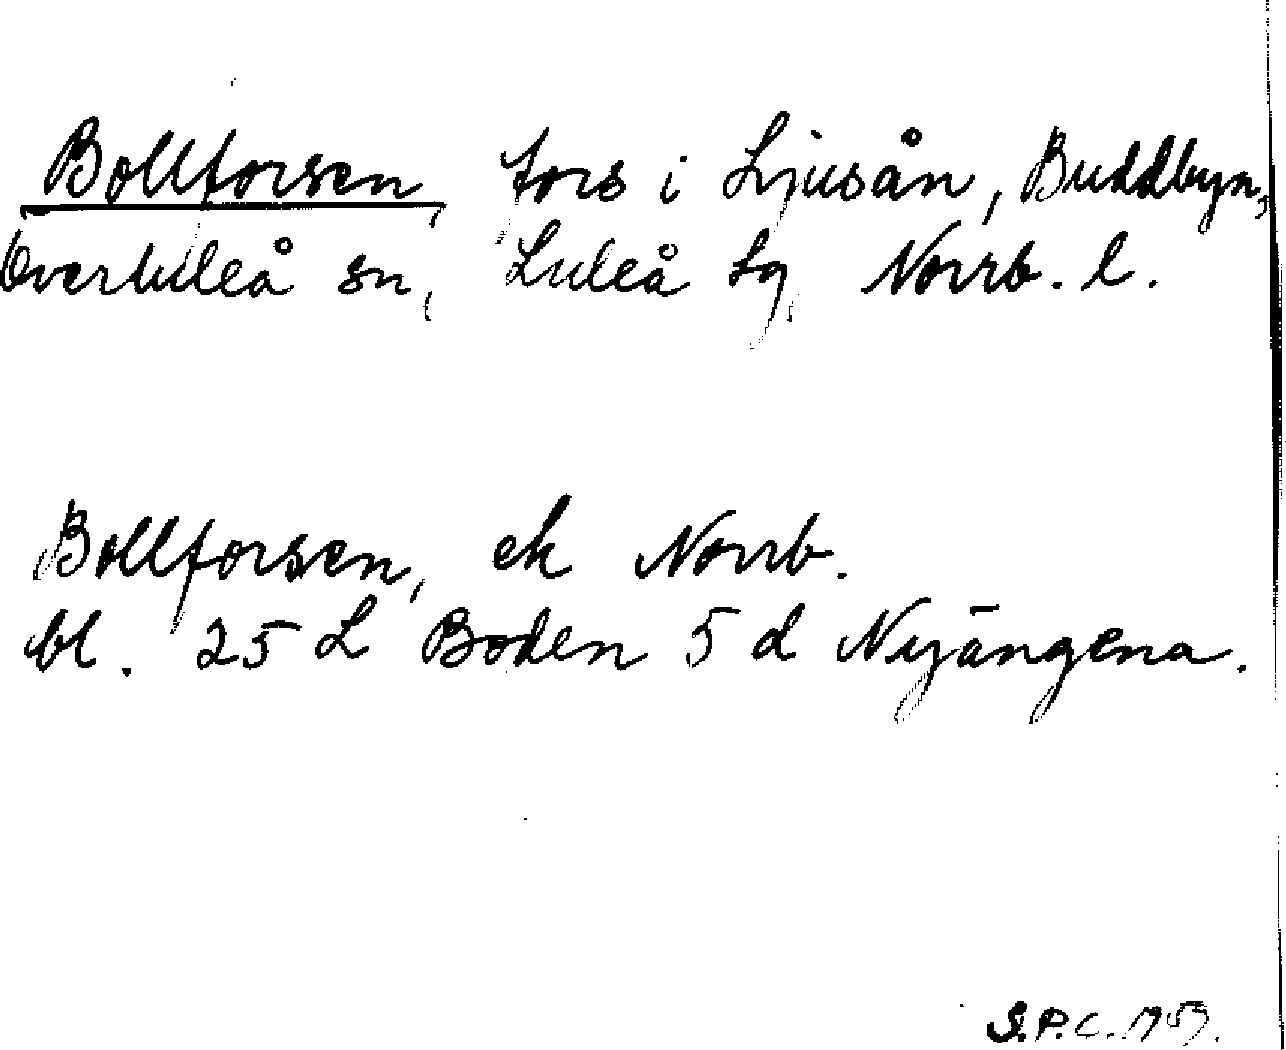 Bollforsen, fors i Ljusån, Buddbyn,
Överluleå sn, Luleå tg, Norrb. l.
Bollforsen, ek Norrb.
bl. 25 L Boden 5 d Nyängena.
S.P.C.